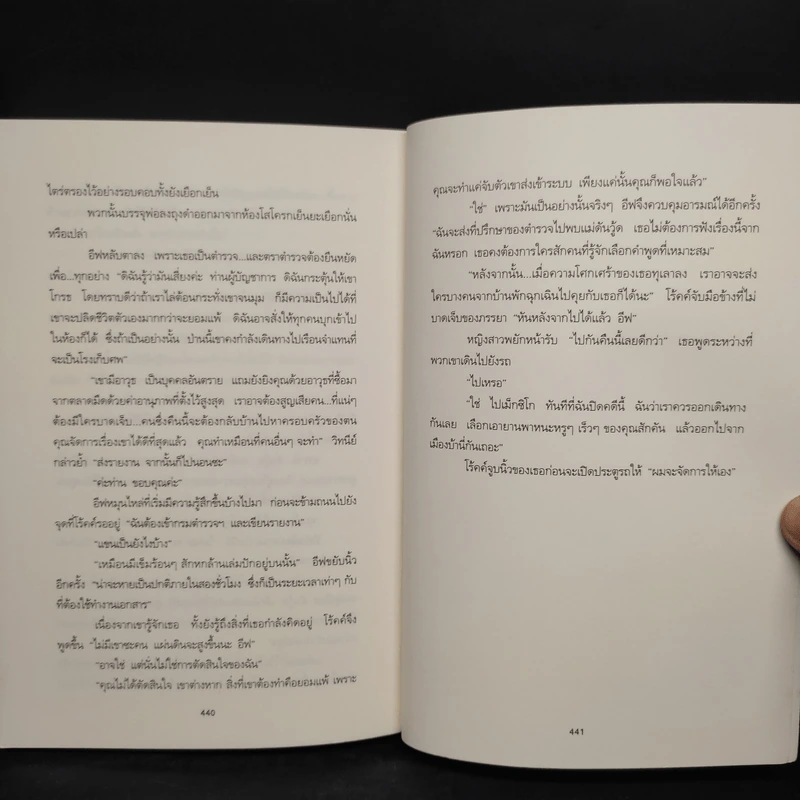 ไตร่ตรองไว้อย่างรอบคอบทั้งยังเยือกเย็น
พวกนั้นบรรจุพ่อลงถุงดำออกมาจากห้องโสโครกเย็นยะเยือกนั่น
หรือเปล่า
อีฟหลับตาลง เพราะเธอเป็นตำรวจ...และตราตำรวจต้องยืนหยัด
เพื่อ...ทุกอย่าง “ดิฉันรู้ว่ามันเสี่ยงค่ะ ท่านผู้บัญชาการ ดิฉันกระตุ้นให้เขา
โกรธ โดยทราบดีว่าถ้าเราไล่ต้อนกระทั่งเขาจนมุม ก็มีความเป็นไปได้ที่
เขาจะปลิดชีวิตตัวเองมากกว่าจะยอมแพ้ ดิฉันอาจสั่งให้ทุกคนบุกเข้าไป
ในห้องก็ได้ ซึ่งถ้าเป็นอย่างนั้น ป่านนี้เขาคงกำลังเดินทางไปเรือนจำแทนที่
จะเป็นโรงเก็บศพ”
“เขามีอาวุธ เป็นบุคคลอันตราย แถมยังยิงคุณด้วยอาวุธที่ซื้อมา
จากตลาดมืดด้วยค่าอานุภาพที่ตั้งไว้สูงสุด เราอาจต้องสูญเสียคน...ที่แน่ๆ
ต้องมีใครบาดเจ็บ...คนซึ่งคืนนี้จะต้องกลับบ้านไปหาครอบครัวของตน
คุณจัดการเรื่องเขาได้ดีที่สุดแล้ว คุณทำเหมือนที่คนอื่นๆ จะทำ” วิทนีย์
กล่าวย้ำ “ส่งรายงาน จากนั้นก็ไปนอนซะ”
“ค่ะท่าน ขอบคุณค่ะ”
อีฟหมุนไหล่ที่เริ่มมีความรู้สึกขึ้นบ้างไปมา ก่อนจะข้ามถนนไปยัง
จุดที่โร้คค์รออยู่ “ฉันต้องเข้ากรมตำรวจฯ และเขียนรายงาน”
“แขนเป็นยังไงบ้าง”
“เหมือนมีเข็มร้อนๆ สักหกล้านเล่มปักอยู่บนนั้น” อีฟขยับนิ้ว
อีกครั้ง “น่าจะหายเป็นปกติภายในสองชั่วโมง ซึ่งก็เป็นระยะเวลาเท่าๆ กับ
ที่ต้องใช้ทำงานเอกสาร”
เนื่องจากเขารู้จักเธอ ทั้งยังรู้ถึงสิ่งที่เธอกำลังคิดอยู่ โร้คค์จึง
พูดขึ้น “ไม่มีเขาซะคน แผ่นดินจะสูงขึ้นนะ อีฟ”
“อาจใช่ แต่นั่นไม่ใช่การตัดสินใจของฉัน”
“คุณไม่ได้ตัดสินใจ เขาต่างหาก สิ่งที่เขาต้องทำคือยอมแพ้ เพราะ
440
คุณจะทำแค่จับตัวเขาส่งเข้าระบบ เพียงแค่นั้นคุณก็พอใจแล้ว”
“ใช่” เพราะมันเป็นอย่างนั้นจริงๆ อีฟจึงควบคุมอารมณ์ได้อีกครั้ง
“ฉันจะส่งที่ปรึกษาของตำรวจไปพบแม่ดันวู้ด เธอไม่ต้องการฟังเรื่องนี้จาก
ฉันหรอก เธอคงต้องการใครสักคนที่รู้จักเลือกคำพูดที่เหมาะสม”
“หลังจากนั้น...เมื่อความโศกเศร้าของเธอทุเลาลง เราอาจจะส่ง
ใครบางคนจากบ้านพักฉุกเฉินไปคุยกับเธอก็ได้นะ” โร้คค์จับมือข้างที่ไม่
บาดเจ็บของภรรยา “หันหลังจากไปได้แล้ว อีฟ”
หญิงสาวพยักหน้ารับ “ไปกันคืนนี้เลยดีกว่า” เธอพูดระหว่างที่
พวกเขาเดินไปยังรถ
“ไปเหรอ”
“ใช่ ไปเม็กซิโก ทันทีที่ฉันปิดคดีนี้ ฉันว่าเราควรออกเดินทาง
กันเลย เลือกเอายานพาหนะหรูๆ เร็วๆ ของคุณสักคัน แล้วออกไปจาก
เมืองบ้านี่กันเถอะ”
โร้คค์จูบนิ้วของเธอก่อนจะเปิดประตูรถให้ “ผมจะจัดการให้เอง”
441